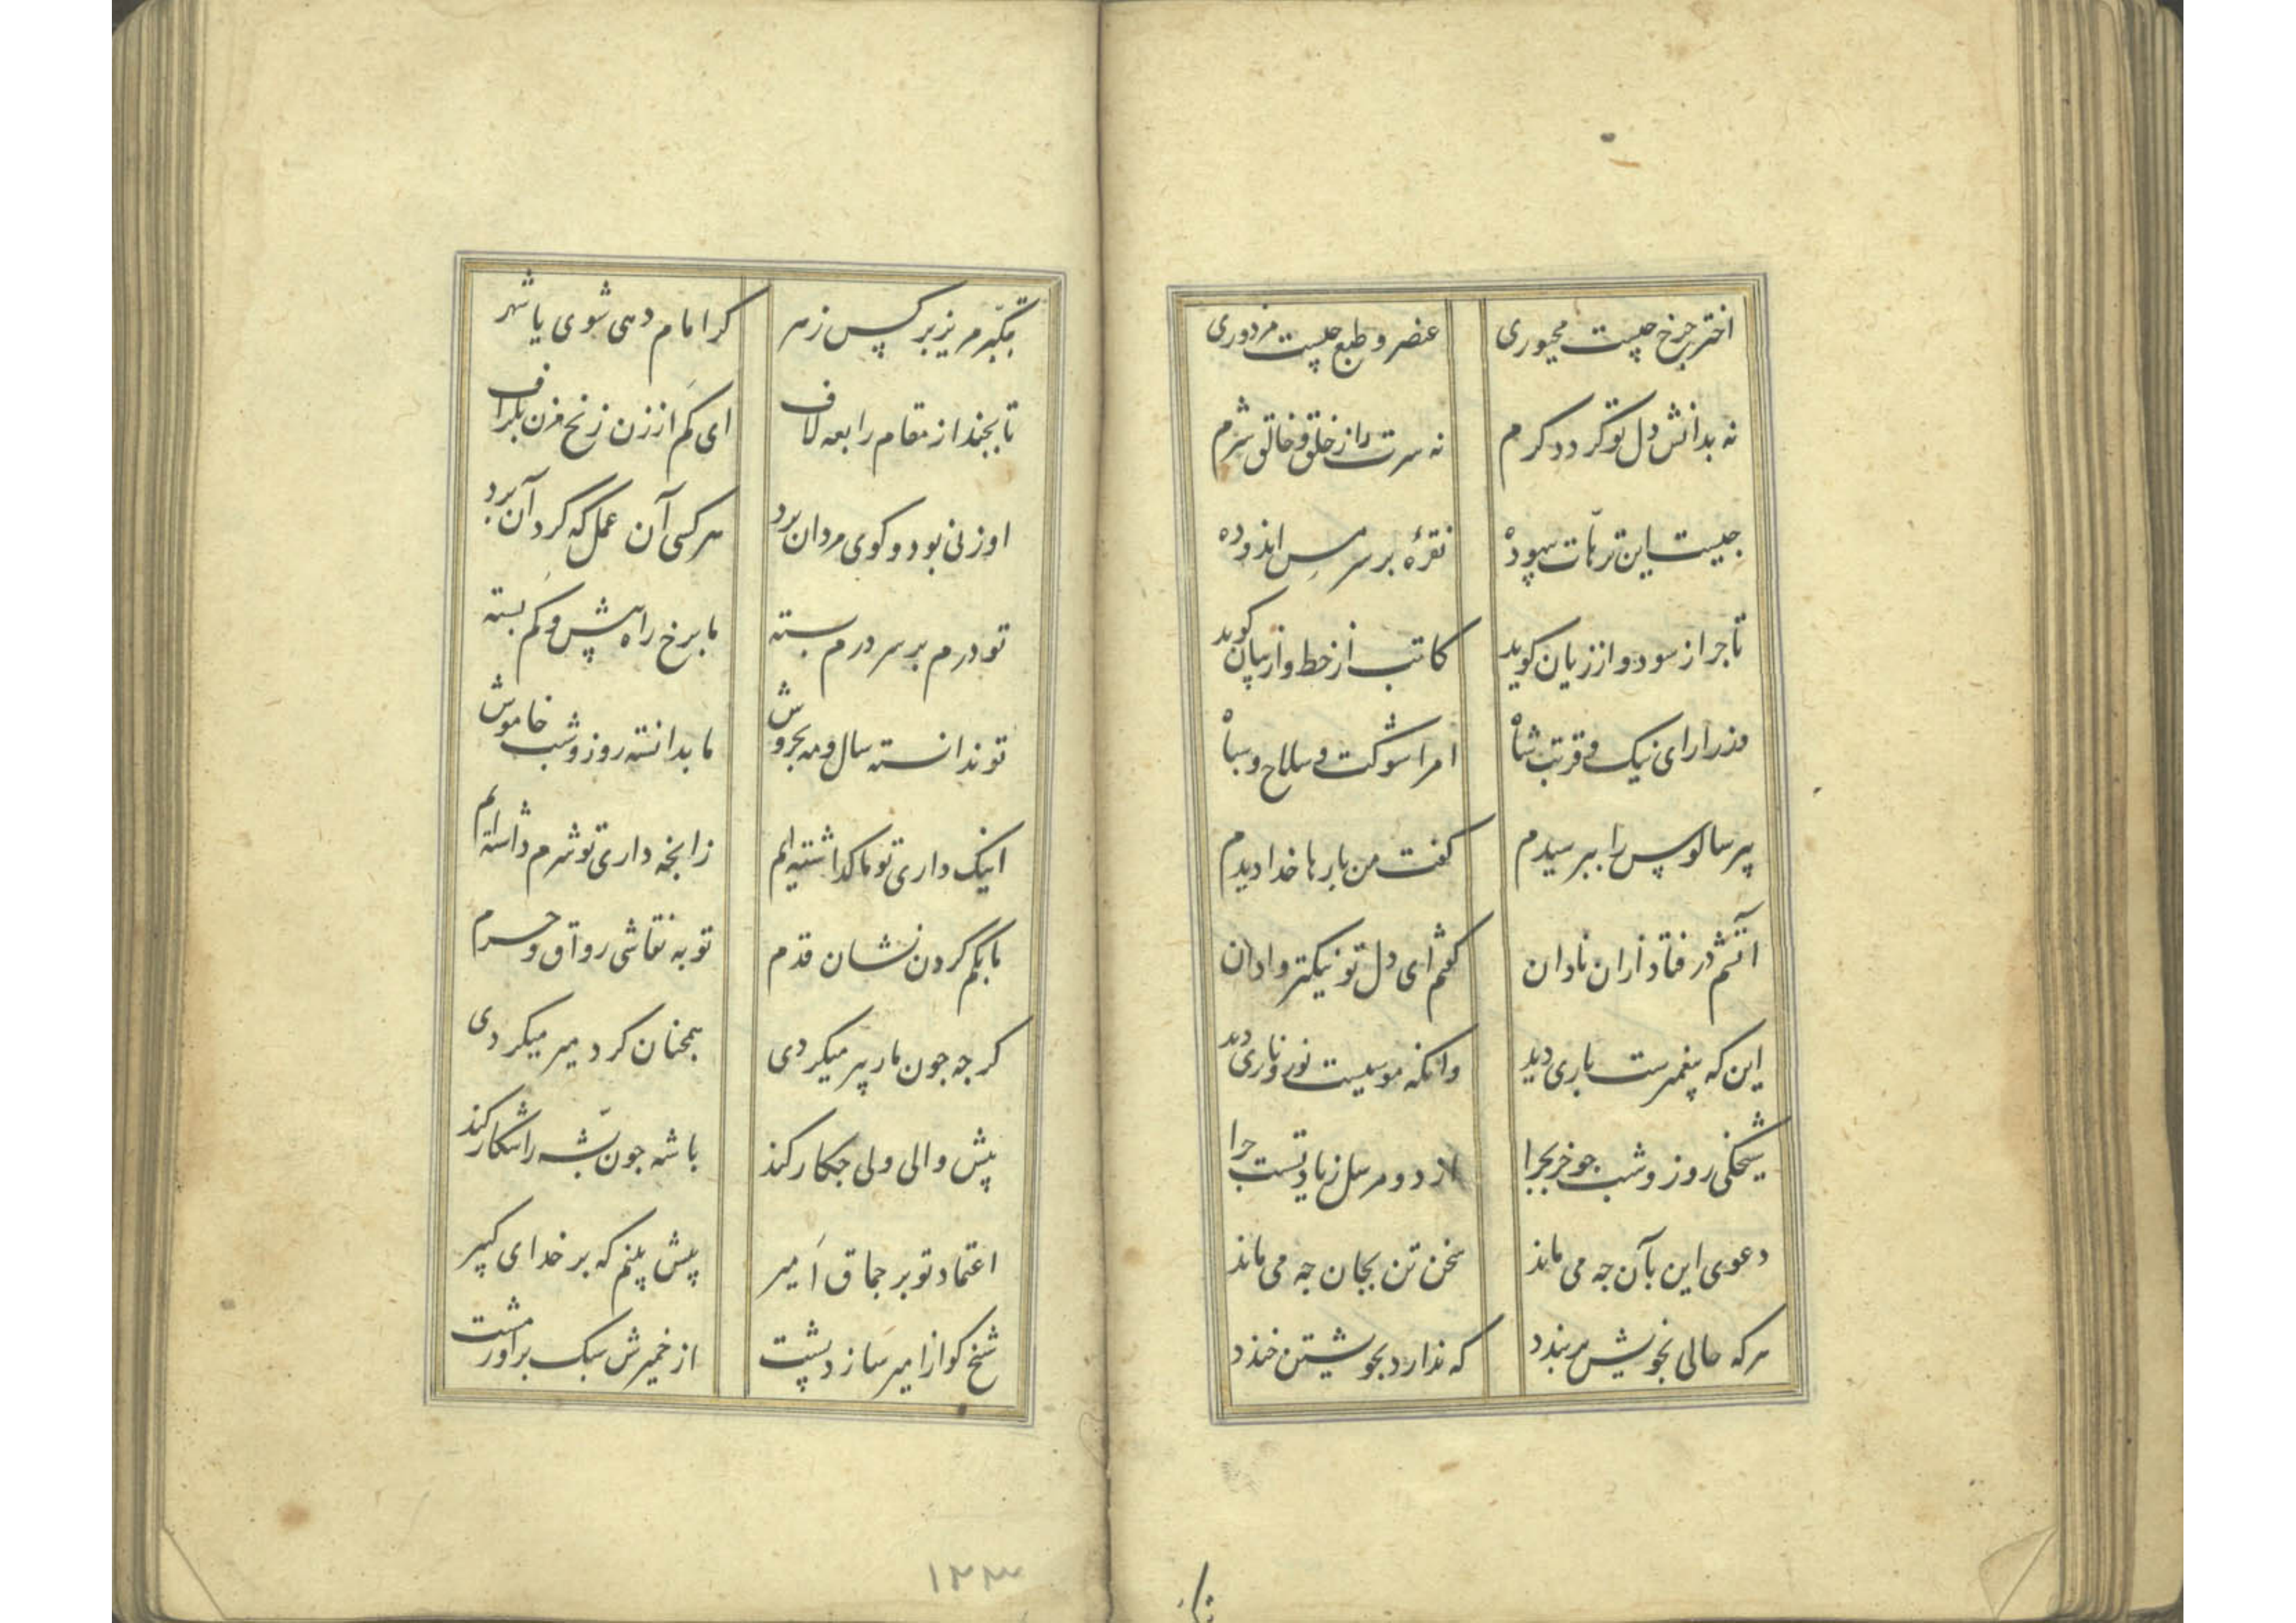 اختر چرخ چیست مجبوری
عنصر و طبع چیست مزدوری
نه بدانش دل تو گردد گرم
نه سرت را ز خلق و خالق شرم
چیست این ترهات بیهوده
نقرهٔ بر سر مس اندوده
تاجر از سود و از زیان کوید
کاتب از خط و از بیان کوید
وزرا رای نیک و قربت شاه
امرا شوکت و سلاح و سپاه
پیر سالوس را بپرسیدم
کفت من بارها خدا دیدم
آتشم در فتاد از ان نادان
کفتم ای دل تو نیکتر وادان
این که پیغمبرست باری دید
وانکه موسیست نور و ناری دید
شیخکی روز و شب چو خر بچرا
از دو مرسل زیادتست چرا
دعوی این بآن چه می ماند
سخن تن بجان چه می ماند
هرکه حالی بخویش بر بندد
که ندارد بخویشتن خندد
بتکبر مریز بر کس زهر
کر امام دهی شوی یا شهر
تا بچند از مقام رابعه لاف
ای کم از زن زنخ مزن بکزاف
او زنی بود و کوی مردان برد
هر کسی آن عمل که کرد آن برد
تو درم بر سر درم بسته
ما برخ راه بیش و کم بسته
تو ندانسته سال و مه بخروش
ما بدانسته روز و شب خاموش
اینک داری تو ما کذاشته ایم
زانچه داری تو شرم داشته ایم
ما بگم کردن نشان قدم
تو به نقاشی رواق و حرم
کرچه چون مار پیر میکردی
همچنان کرد میر میکردی
پیش والی ولی چکار کند
باشه چون پشه را شکار کند
اعتماد تو بر چماق امیر
بیش بینم که بر خدای کبیر
شیخ کو از امیر سازد پشت
از خمیرش سبک برآور مشت
۱۳۳